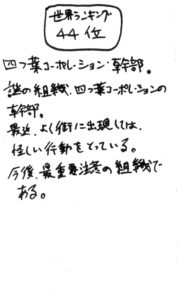 世界ランキング
44位
四つ葉コーポレーション・幹部。
謎の組織、四つ葉コーポレーションの
幹部。
最近、よく街に出現しては、
怪しい行動をとっている。
今後、最重要注意の組織で
ある。